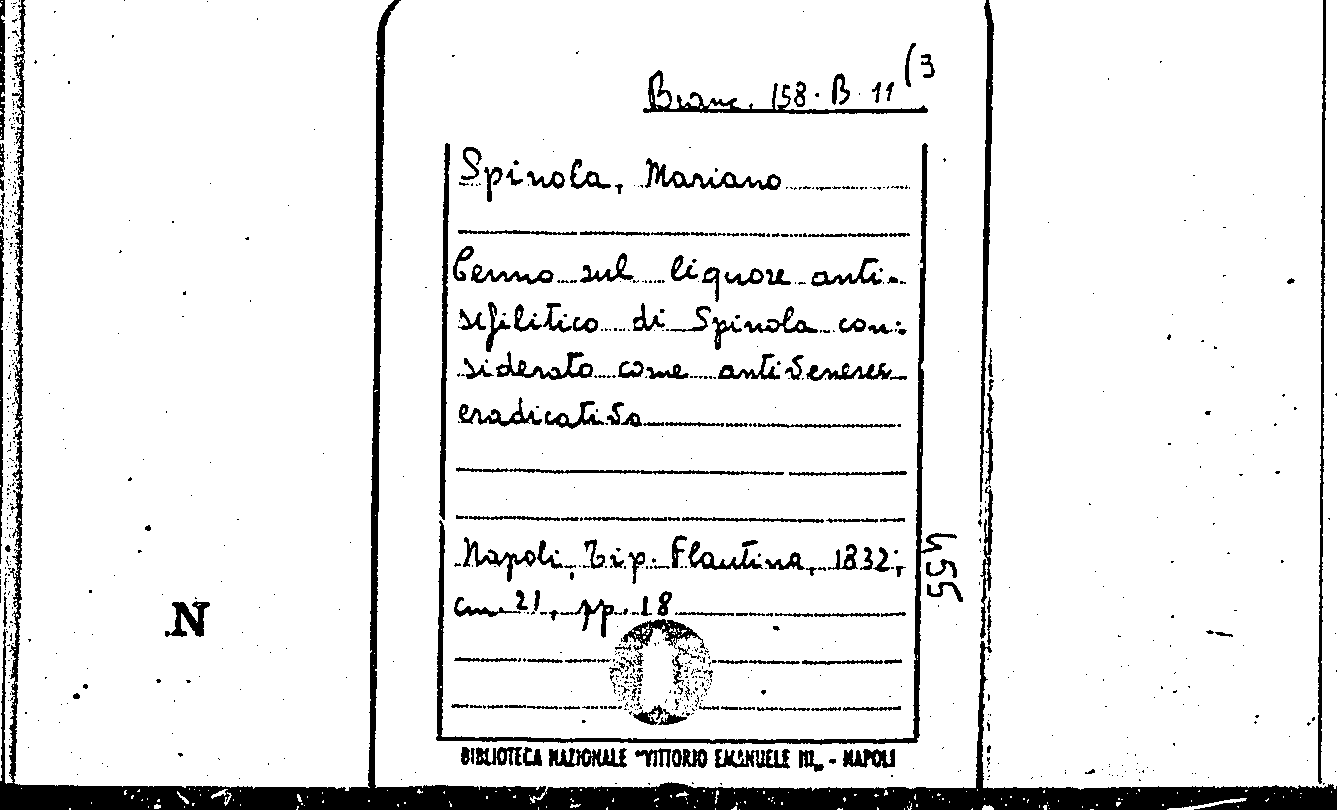 Branc. 158. B. 11 (3
Spinola, Mariano
Cenno sul liquore anti-
sifilitico di Spinola con-
siderato come antivenereo
eradicativo
Napoli, Tip. Flautina, 1832;
cm. 21, pp. 18
455
N
BIBLIOTECA NAZIONALE "VITTORIO EMANUELE III„ - NAPOLI